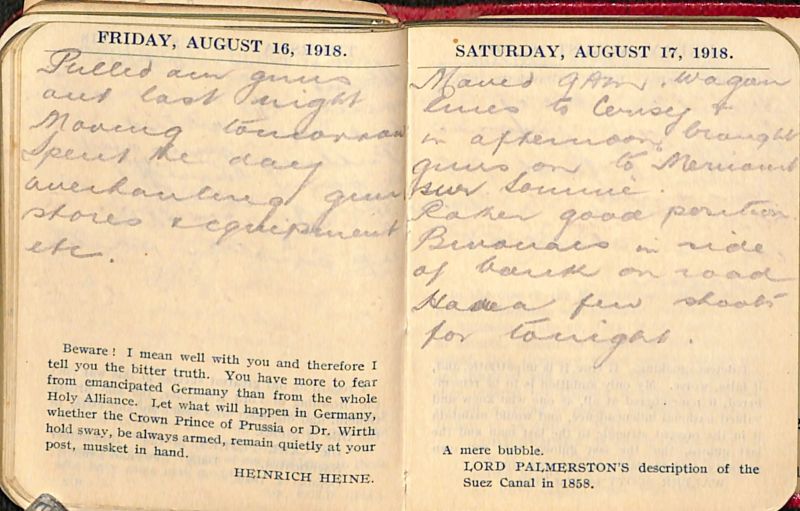 FRIDAY, AUGUST 16, 1918.
Pulled our guns
out last night
Moving tomorrow
Spent the day
overhauling gun
stores & equipment
etc.
Beware! I mean well with you and therefore I
tell you the bitter truth. You have more to fear
from emancipated Germany than from the whole
Holy Alliance. Let what will happen in Germany,
whether the Crown Prince of Prussia or Dr. Wirth
hold sway, be always armed, remain quietly at your
post, musket in hand.
HEINRICH HEINE.
SATURDAY, AUGUST 17, 1918.
Moved 9 Am. Wagon
lines to Cerisy &
in afternoon brought
guns on to Mericourt
sur Somme.
Rather good position.
Bivouacs in side
of bank on road
Had a few shoots
for tonight.
A mere bubble.
LORD PALMERSTON'S description of the
Suez Canal in 1858.